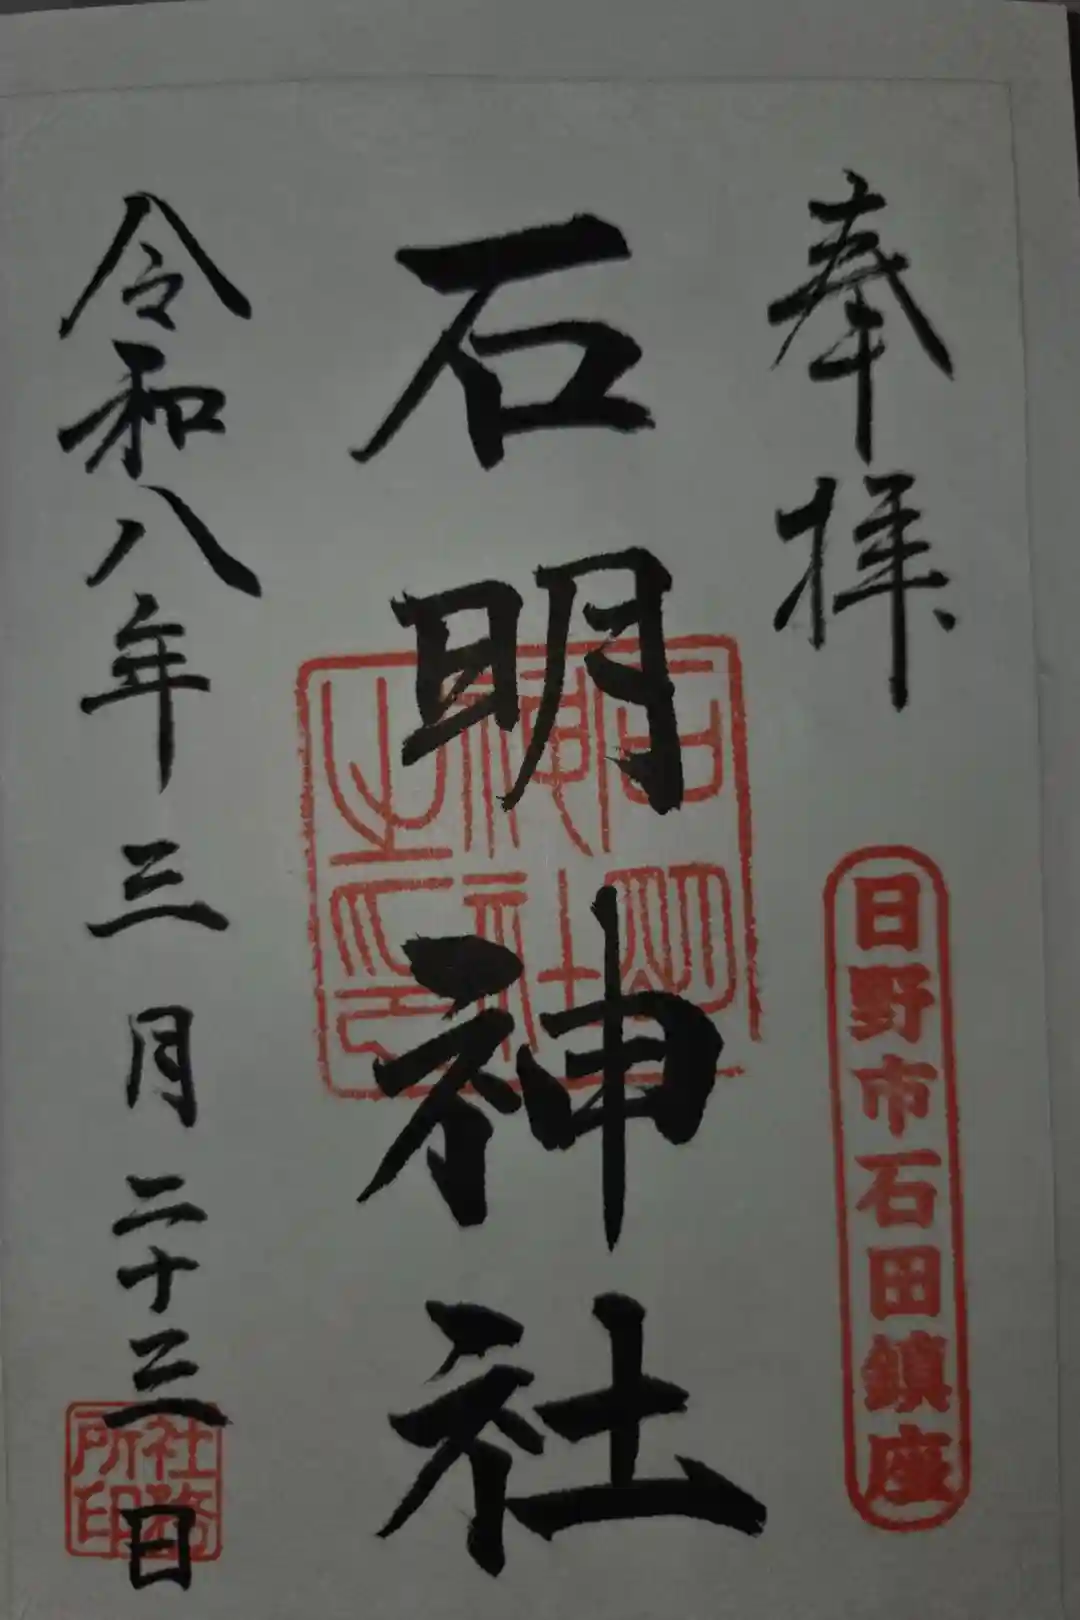 奉拝
日野市石田鎮座
石明神社
石明神社之印
令和八年三月二十三日
社務所印